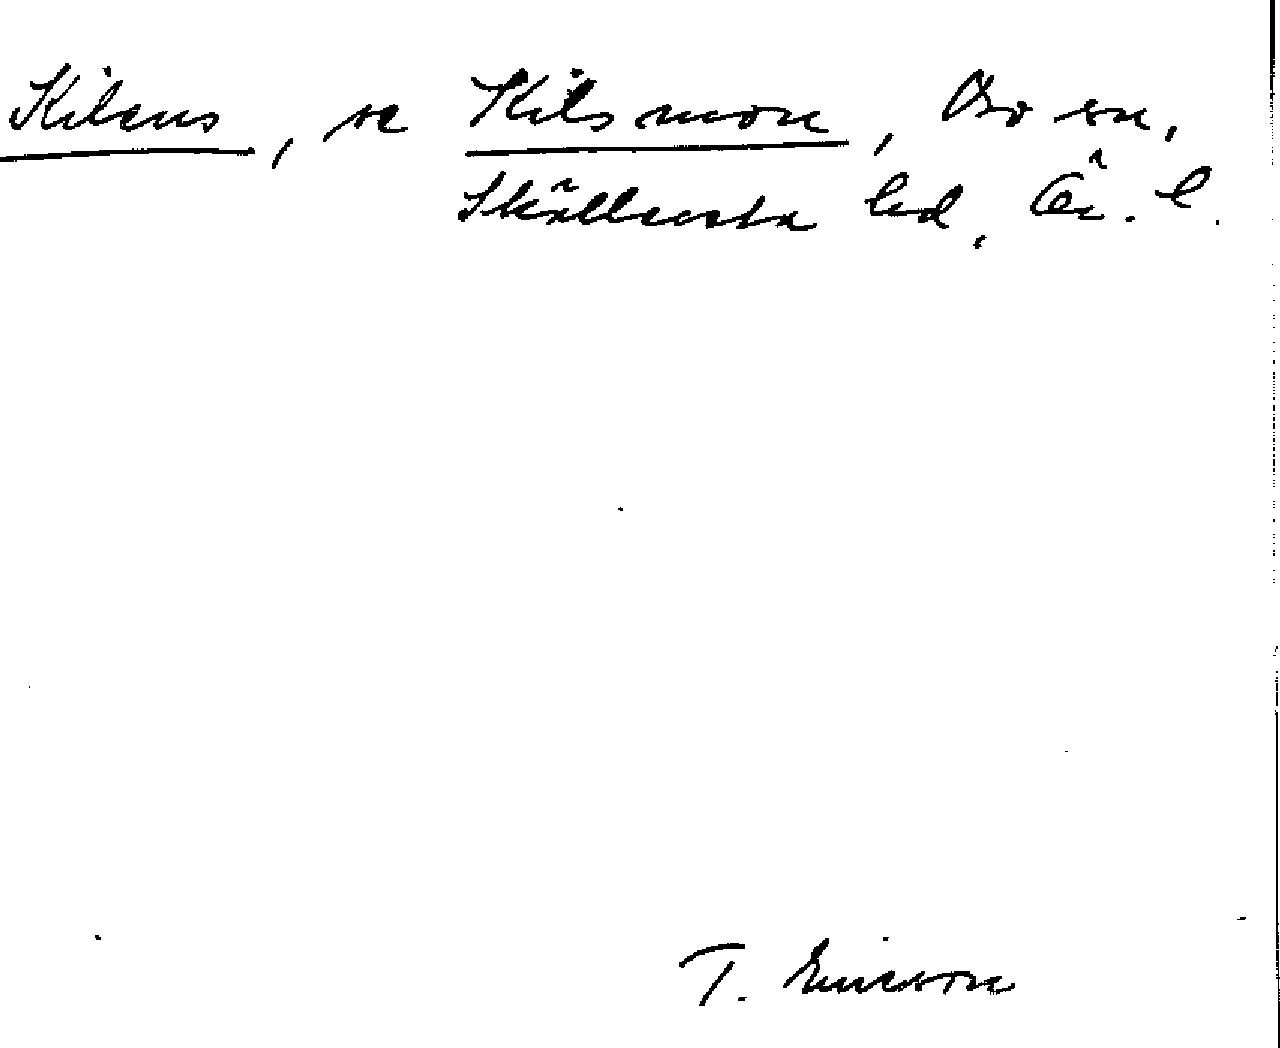 Kilens, se Kilsmon, Bo sn,
Skällersta hd, Ör. l.
T. Ericson